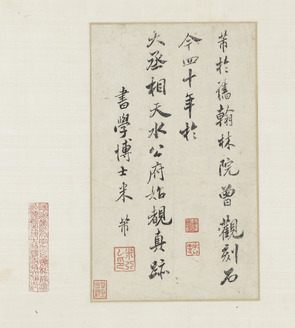 芾於舊翰林院曾觀刻石
今四十年於
大丞相天水公府始觀真跡
書學博士米芾